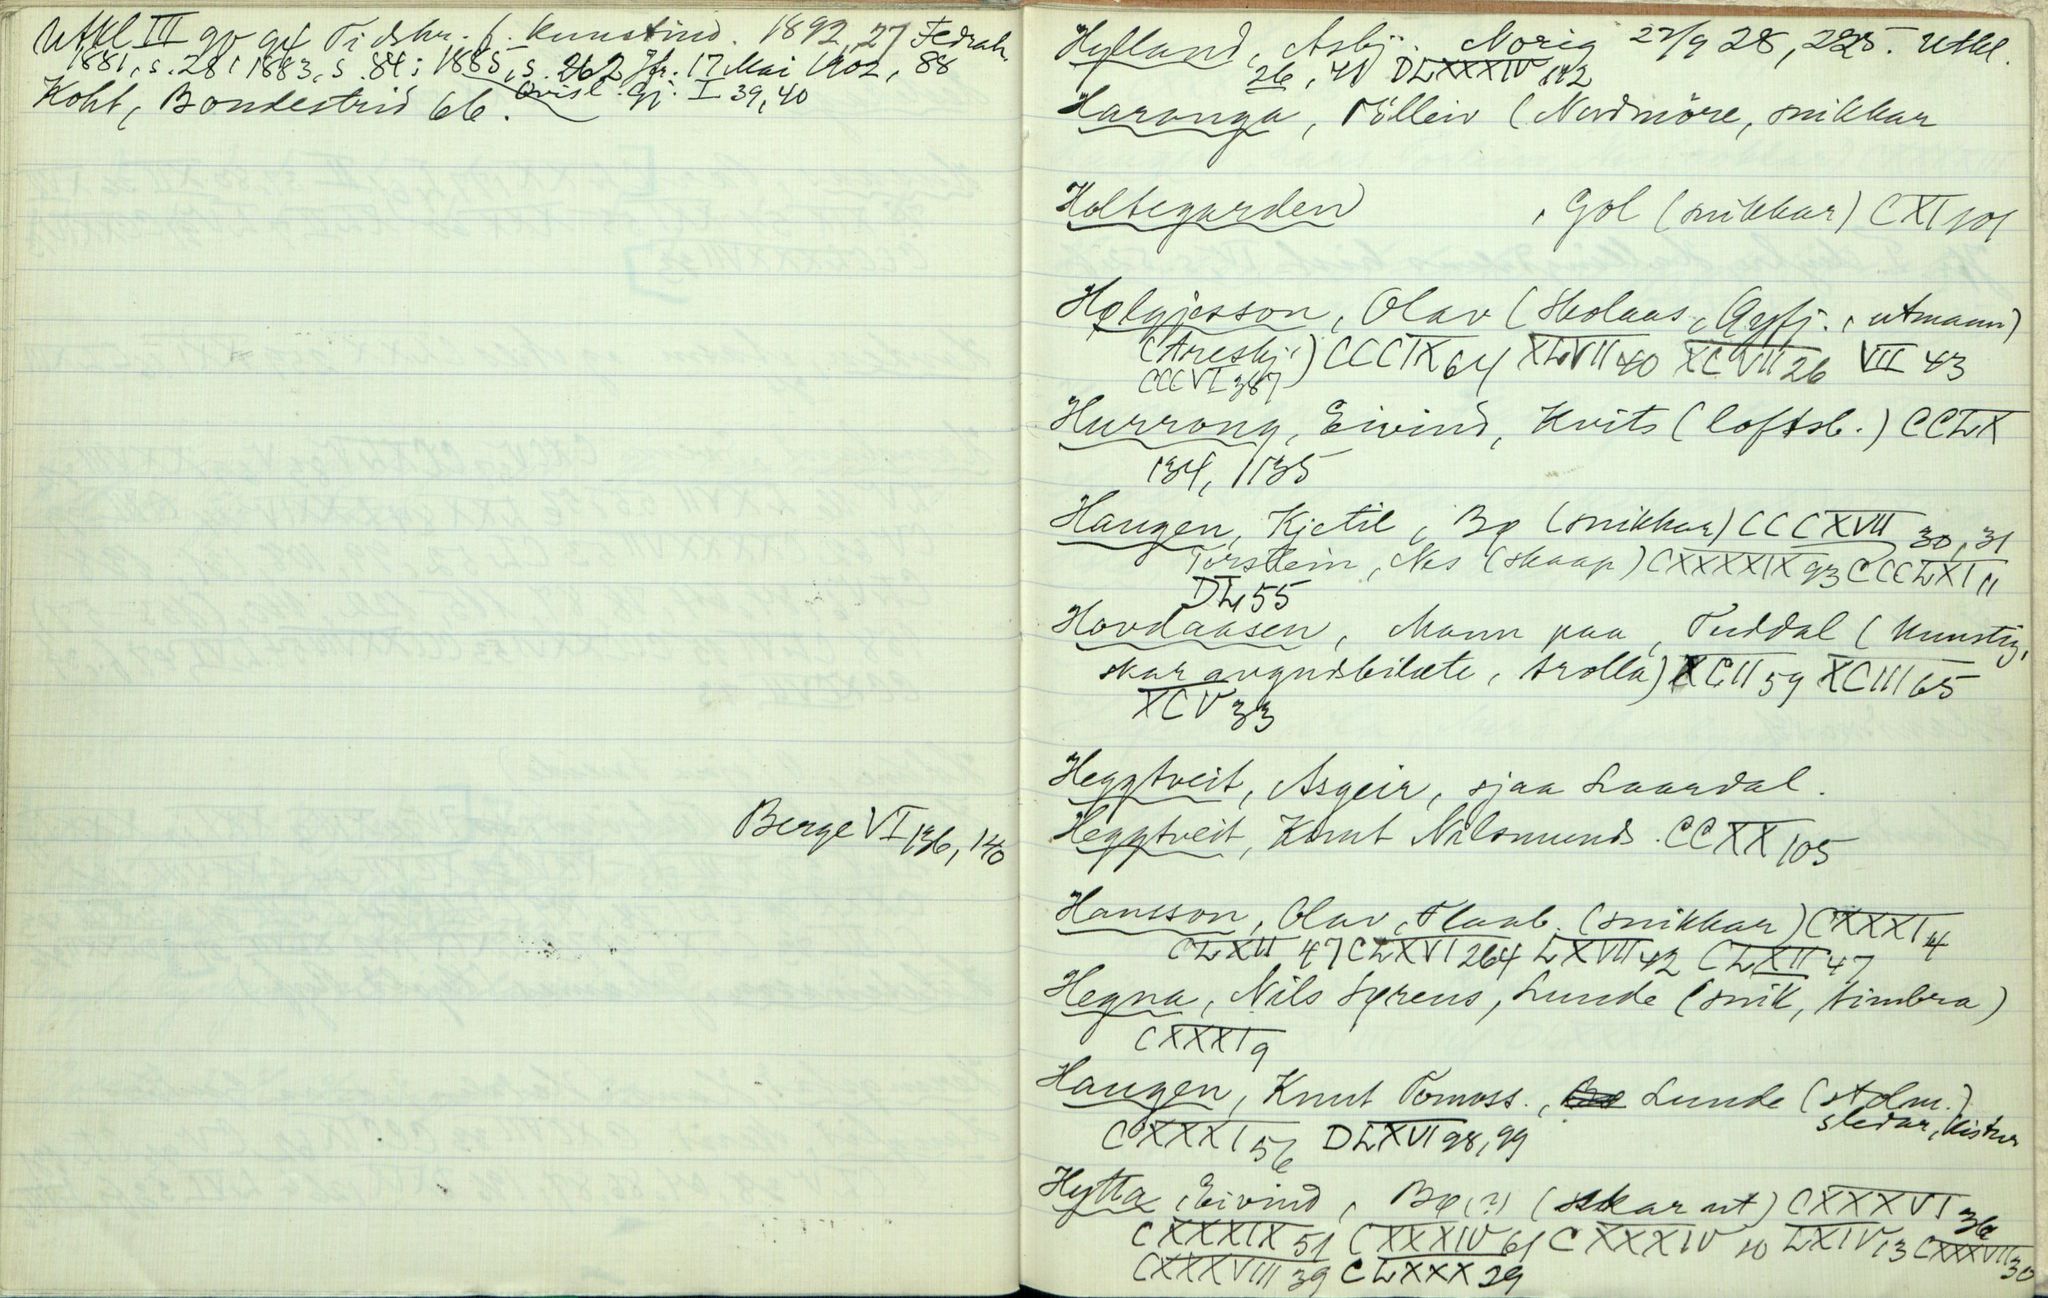 Utkl III 90 94 Tidskr. f. Kunstind. 1892, 27 Fedrah.
1881, s. 28; 1883, s. 84; 1885, s. 262 Jfr. 17 Mai 1902, 88
Qvisl. Gj. I 39, 40
Koht, Bondestrid 66.
Berge VI 136, 140
Hylland, Asbj. Norig 22/9 28, 225. Utkl.
26, 41 DLXXXIV 142
Haranga, Tölleiv (Nordmöre, snikkar
Holtegarden , Gol (snikkar) CXI 101
Hølgjesson, Olav (Skolaas, Gyfj., utmann)
(Aresbj.) CCCIX 64 XLVII 40 XCVII 26 VII 43
CCCVI 387
Hurrong, Eivind, Kvits (loftsb.) CCLX
134, 135
Haugen, Kjetil, Bø (snikkar) CCCXVII 30, 31
Torstein, Nes (skaap) CXXXXIX 93 CCCLXI 11
DL 55
Hovdaasen, Mann paa, Tuddal (kunstig,
skar avgudsbilæte, trolla) XCII 59 XCIII 65
XCV 33
Heggtveit, Asgeir, sjaa Laardal.
Heggtveit, Knut Nilsmunds. CCXX 105
Hansson, Olav, Flaab. (snikkar) CXXXI 4
CLXII 47 CLXVI 264 LXVII 42 CLXII 47
Hegna, Nils Sørens, Lunde (snik, timbra)
CXXXI 9
Haugen, Knut Tomass., Lunde (stolm.)
sledar, kistur
CXXXI 56 DLXVI 98, 99
Hytta, Eivind, Bø (?) (skar ut) CXXXVI 36
CXXXIX 51 CXXXIV 61 CXXXIV 10 LXIV 13 CXXXVII 30
CXXXVIII 39 CLXXX 29